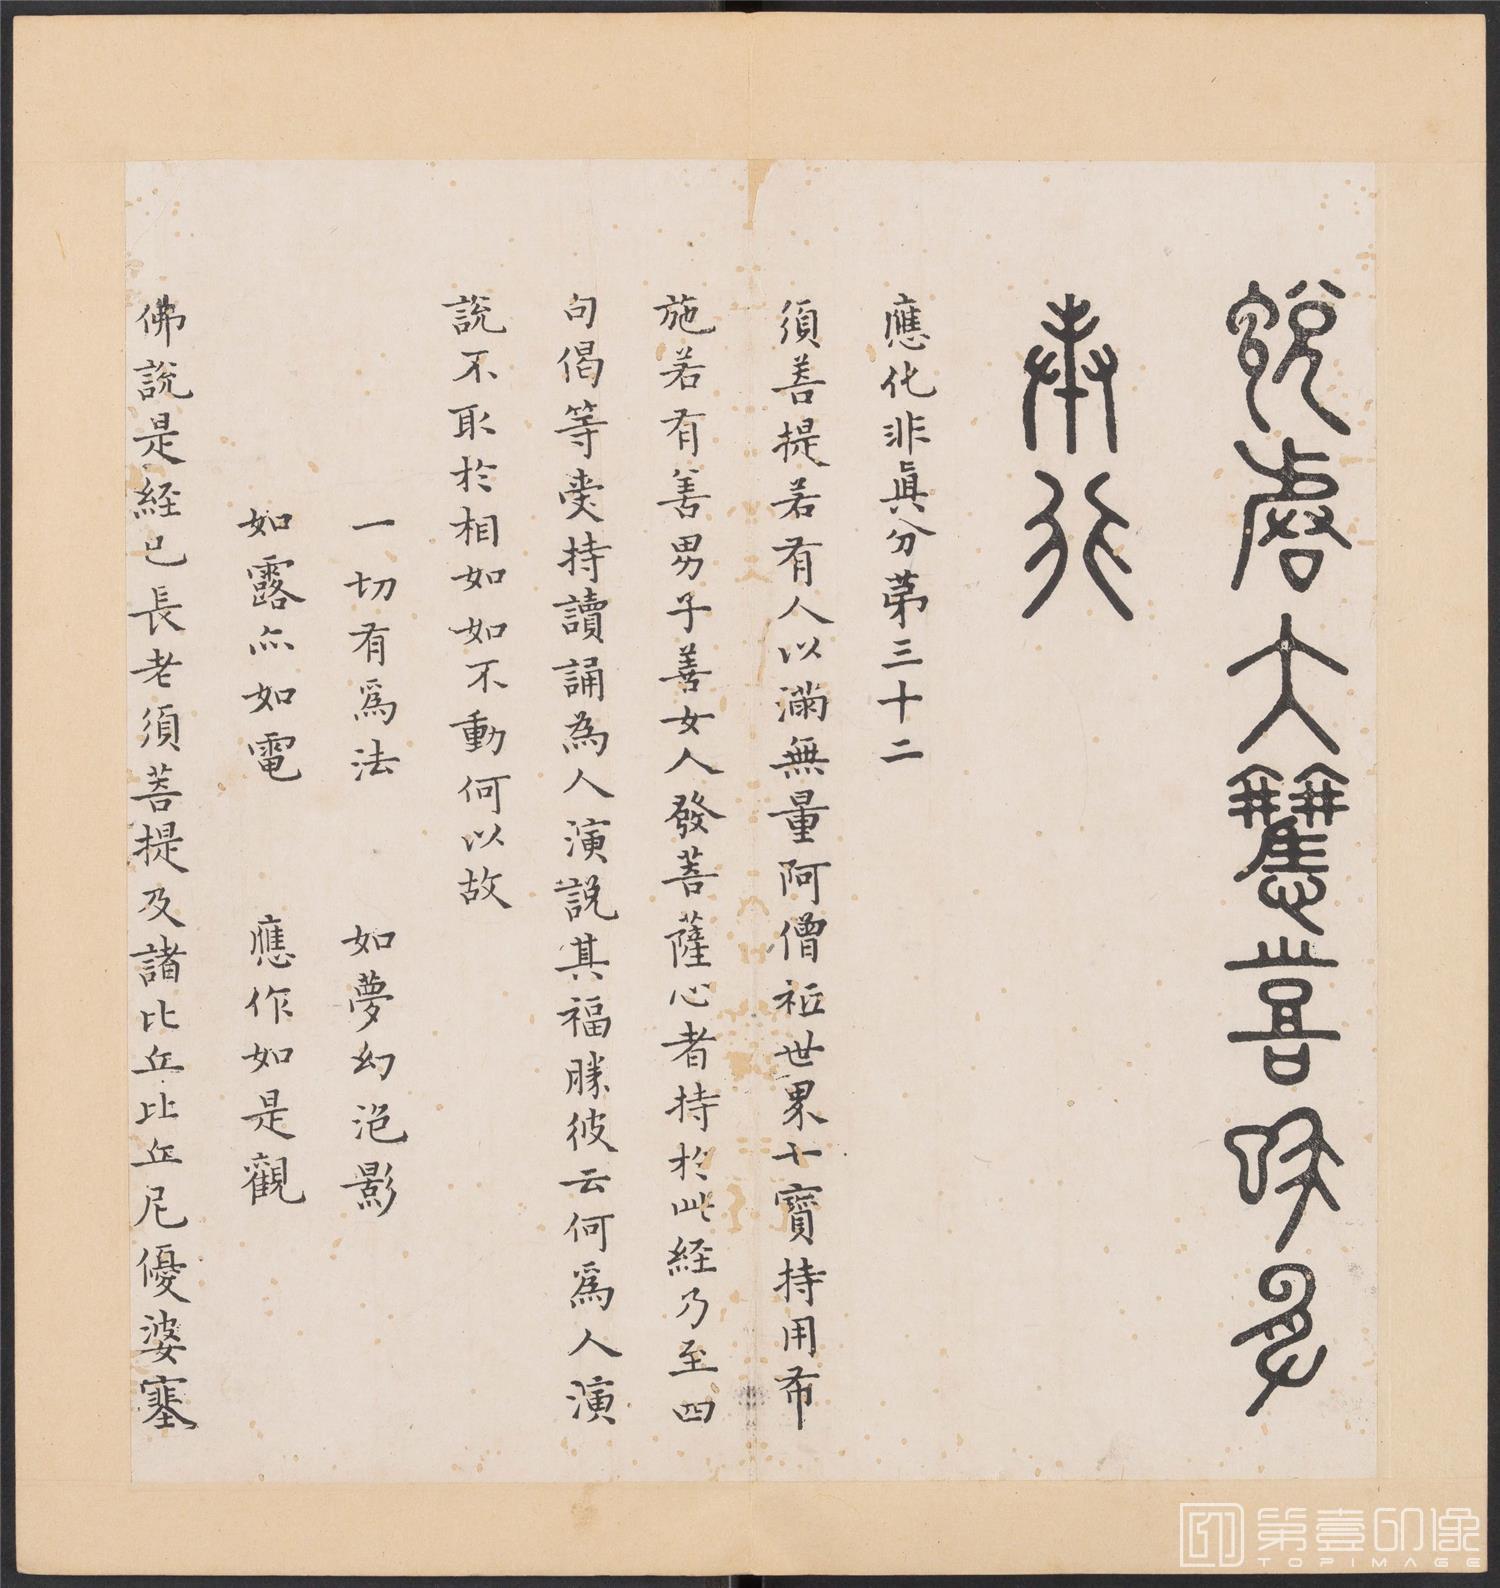 說皆大歡喜信受
奉行
應化非眞分苐三十二
須菩提若有人以滿無量阿僧祇世界七寶持用布
施若有善男子善女人發菩薩心者持於此経乃至四
句偈等受持讀誦為人演說其福勝彼云何爲人演
說不取於相如如不動何以故
一切有爲法 如夢幻泡影
如露亦如電 應作如是觀
佛說是経已長老須菩提及諸比丘比丘尼優婆塞
第壹印像
TOPIMAGE